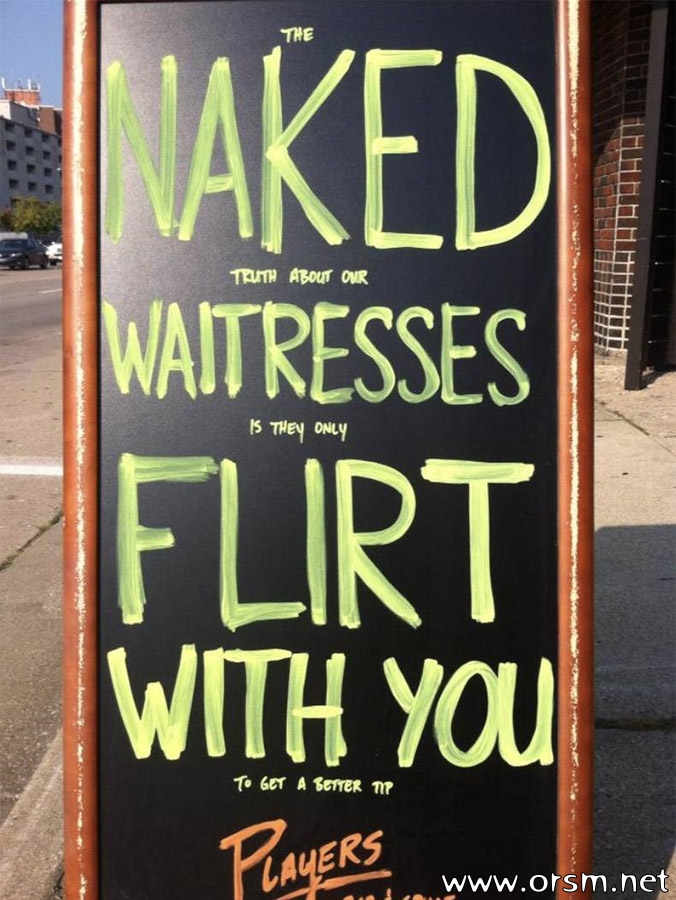 THE
NAKED
TRUTH ABOUT OUR
WAITRESSES
IS THEY ONLY
FLIRT
WITH YOU
TO GET A BETTER TIP
PLAYERS
www.orsm.net